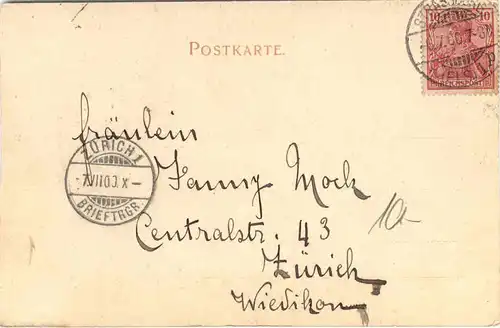 POSTKARTE.
10 10
Fräulein
ZÜRICH 1
7.VII.00.X–
BRIEFTRGR.
Fanny Mock
10-
Centralstr. 43
Zürich
Wiedikon